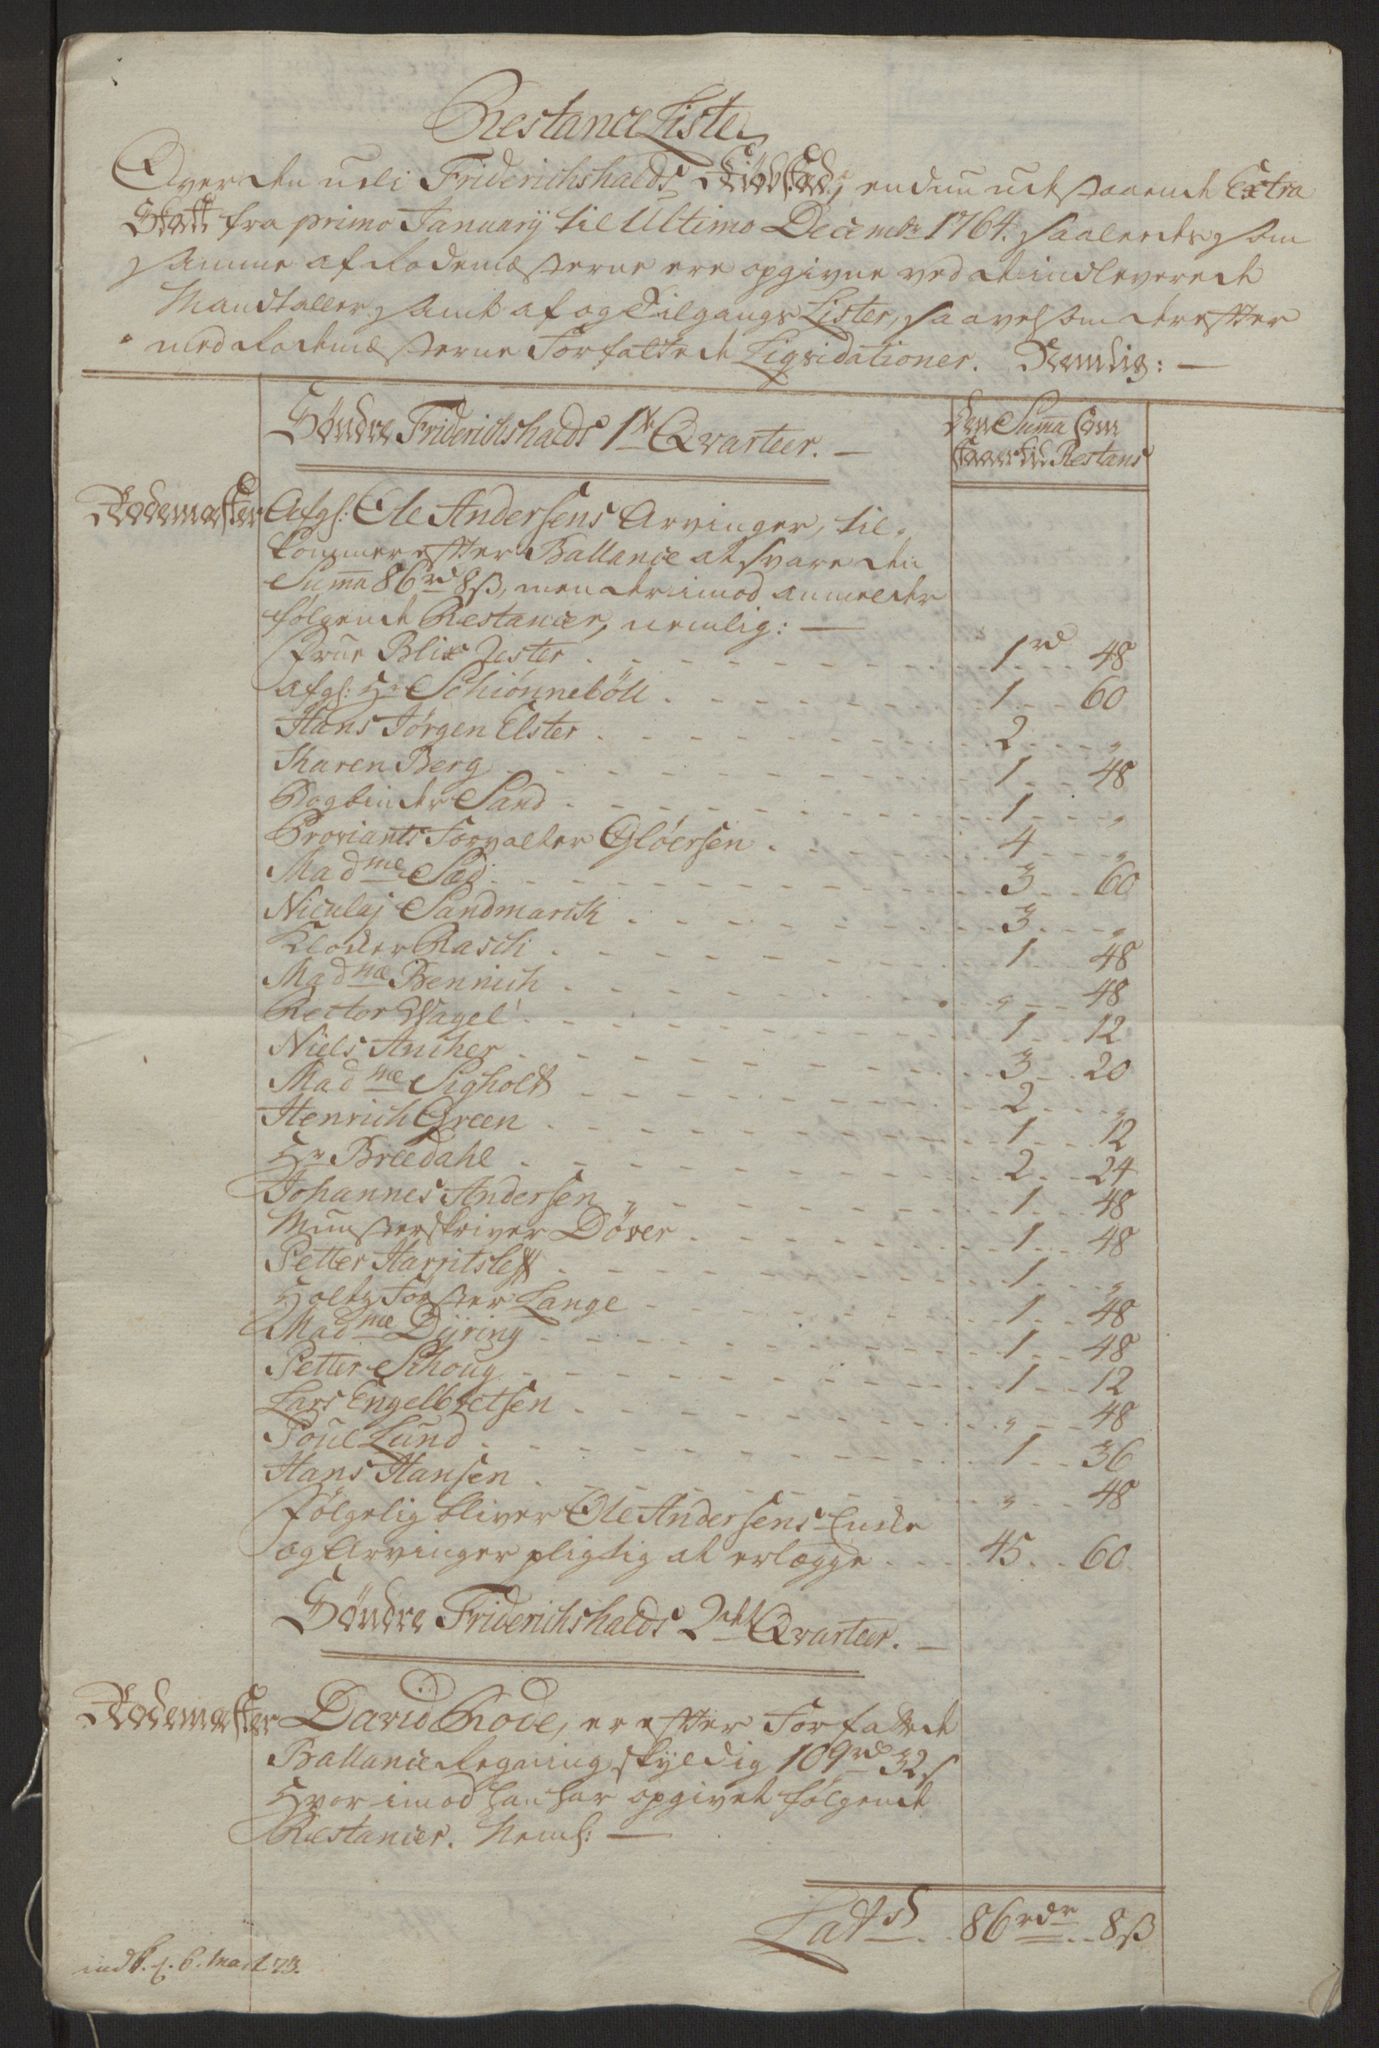 Restance Liste
Over den udi Friderichshalds Kiøbstad, endnu udestaaende Extra
Skatt fra primo Januarÿ til Ultimo Decembr 1764. saaledes som
samme af Rodemesterne ere opgivne ved de indleverede
Mandtaller, samt af og Tilgangs Lister, saavelsom derefter
med Rodemesterne Forfattede Liqvidationer. Nemlig: —
Søndre Friderichshalds 1te Qvarteer. —
Den Summa som
staaer til Restans
Rodemester Afgl: Ole Andersens Arvinger, til-
kommer efter Ballance at svare den
Summa 86rd 8ß, men derimod anmelder
følgende Restancer, nemlig: —
Frue Blix Zester . 1rd 48
Afgl: Hr Schiønnebøll . 1 60
Hans Jørgen Elster . 2 „
Karen Berg 1 48
Bogbinder Sand . 1 „
Proviants Forvalter Gløersen . 4 „
Madme Sæd . 3 60
Niculaj Sandmarck . 3 „
Kloder Rasch . 1 48
Madme Bennich . „ 48
Rector Wagel . 1 12
Niels Ancher . 3 20
Madme Sigholt 2 „
Henrich Green . 1 12
Hr Bredahl . 2 24
Johannes Andersen 1 48
Munsterskriver Döver . 1 48
Petter Harritsleff . 1 „
Holtz Førster Lange . 1 48
Madme Dÿring . 1 48
Petter Schoug . 1 12
Lars Engelbretsen . „ 48
Poul Lund . 1 36
Hans Hansen . „ 48
følgelig bliver Ole Andersens Encke
og Arvinger pligtig at erlegge 45 60
Søndre Friderichshalds 2det Qvarteer. —
Rodemester David Rode, er efter Forfattede
Ballance Regning skyldig 109rd 32s
Hvorimod han har opgivet følgende
Restancer. Neml: —
Lats . 86rdr 8ß
indk. d. 6. Mart 73.